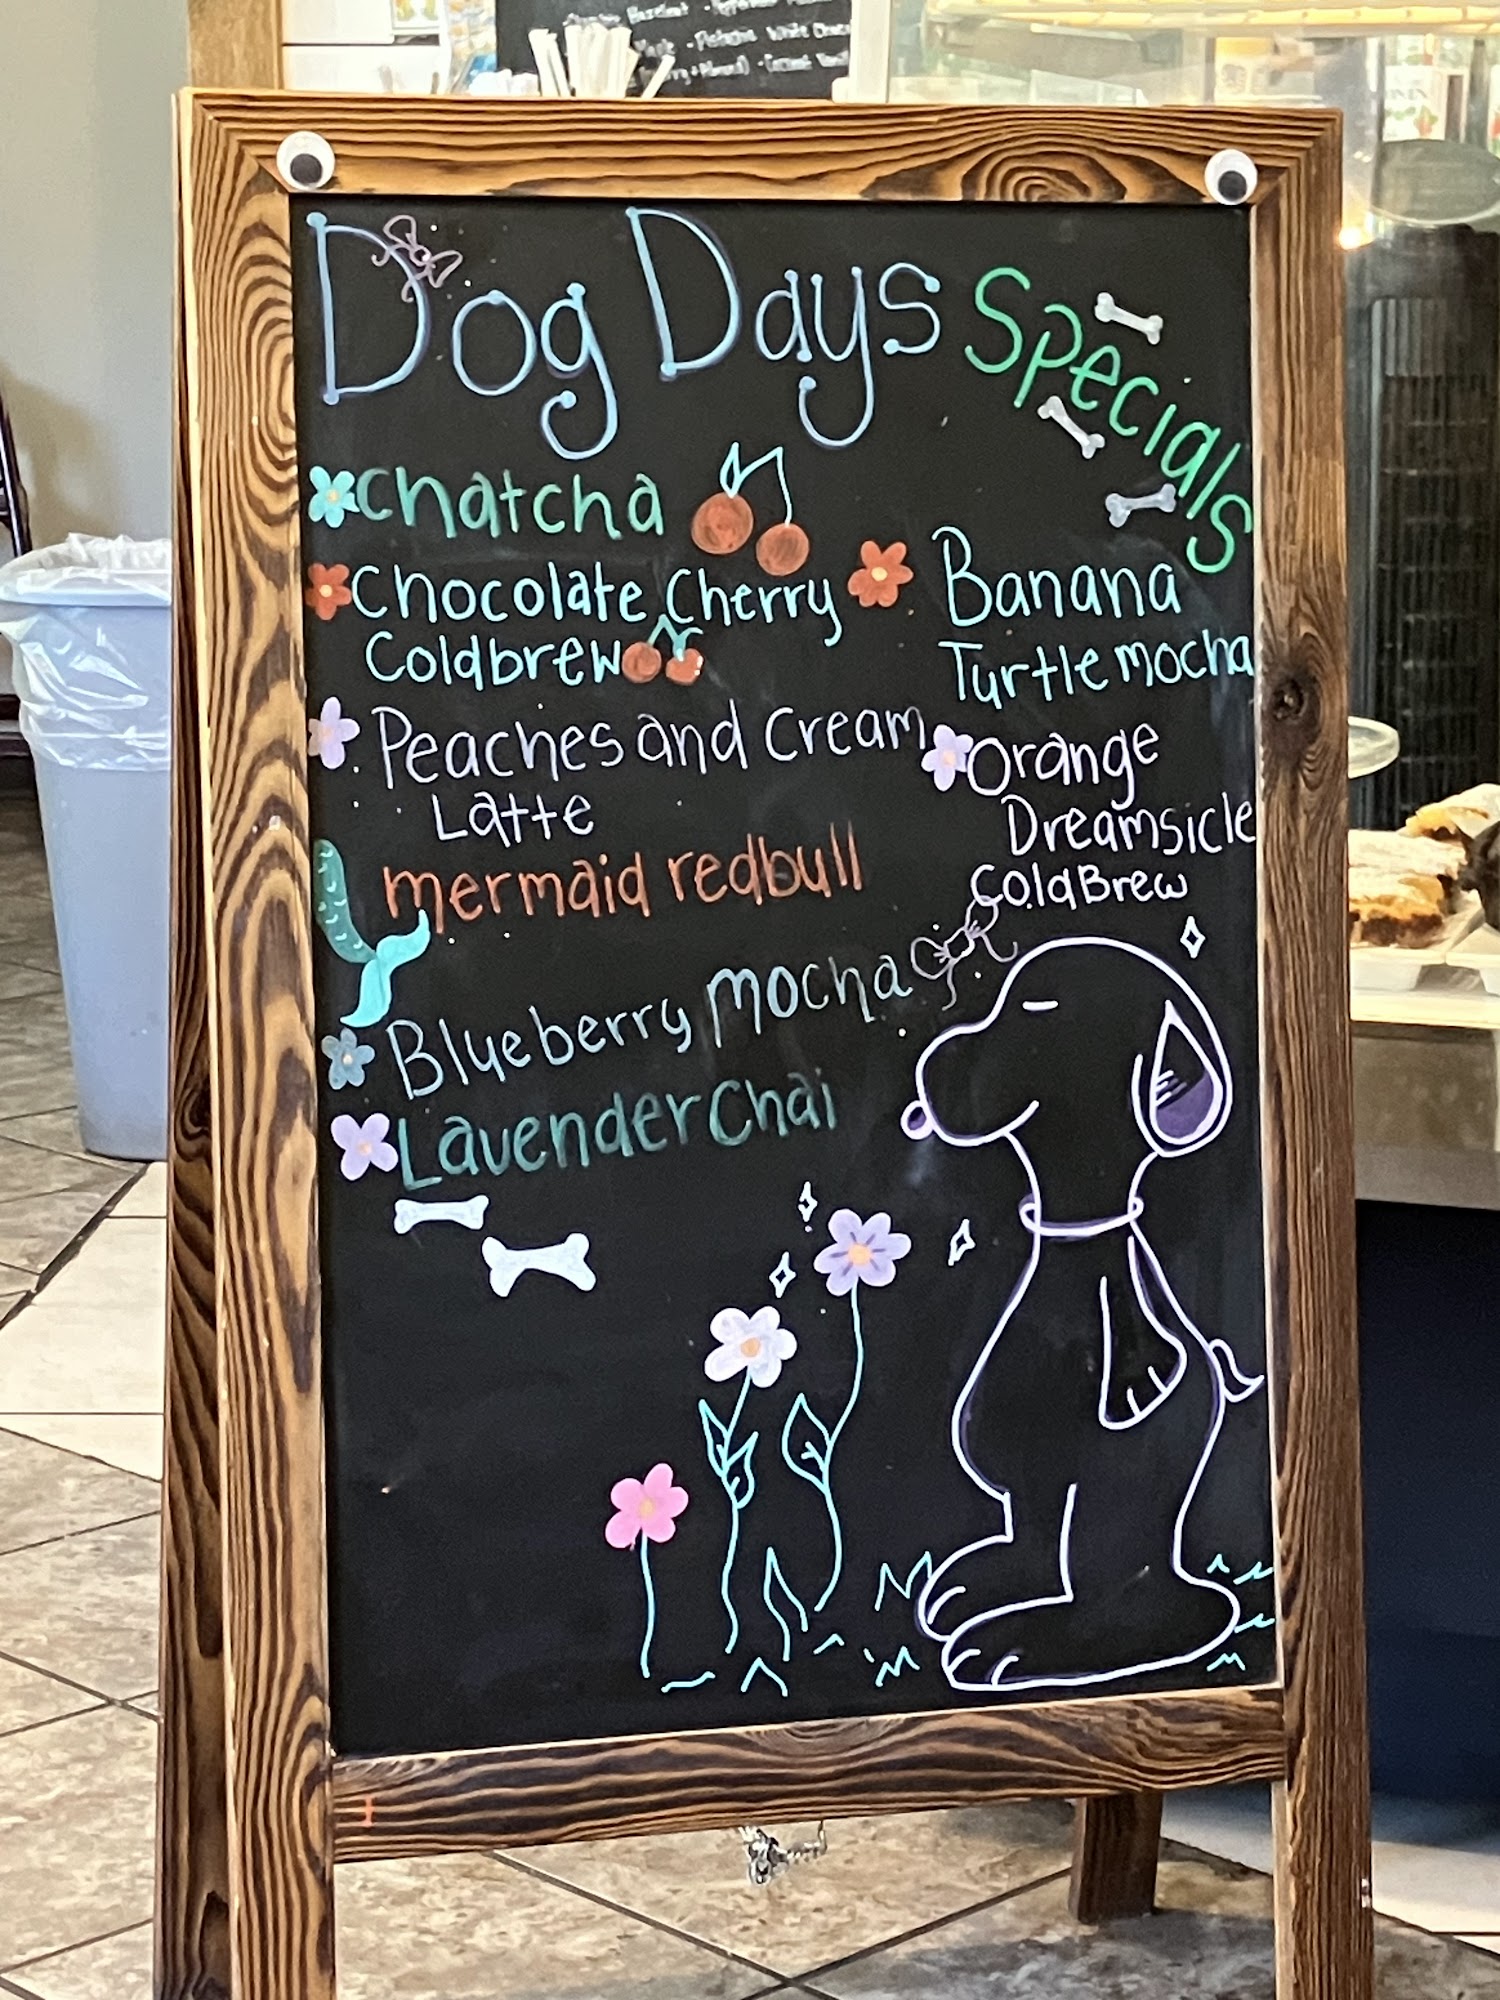 Hazelnut
Maple - Pistachio White Choco
Dog Days Specials
Chatcha
Chocolate Cherry
Coldbrew
Peaches and Cream
Latte
mermaid redbull
Blueberry Mocha
Lavender Chai
Banana
Turtle mocha
Orange
Dreamsicle
ColdBrew